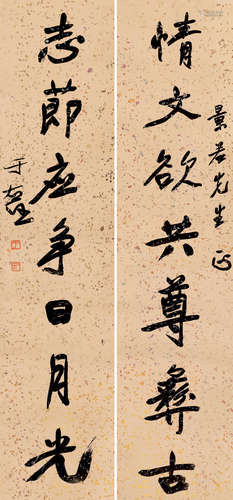 景若先生正
情文欲共尊彝古
志節应争日月光
于右任